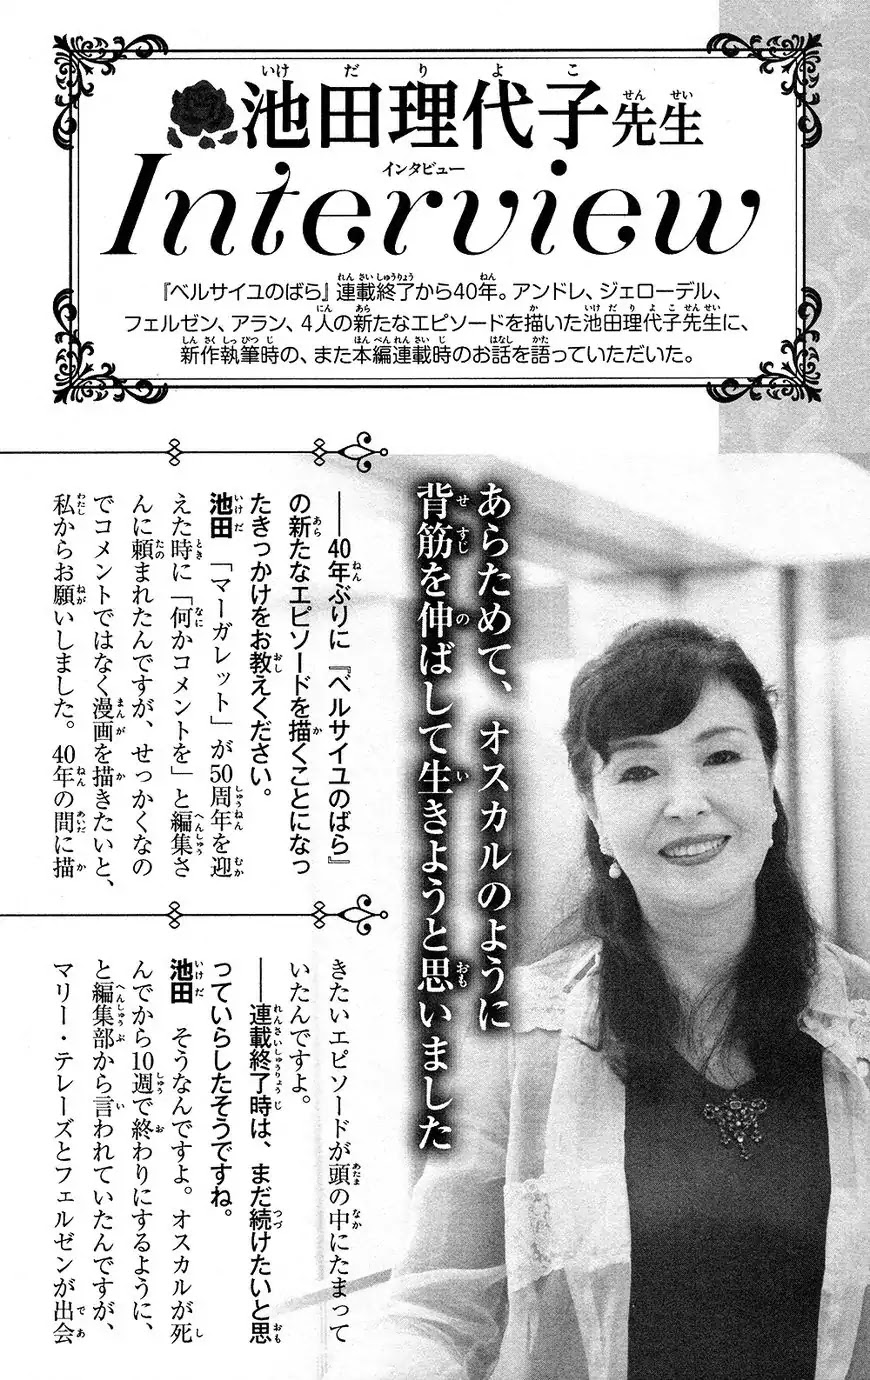 池田理代子先生
Interview
インタビュー
『ベルサイユのばら』連載終了から40年。アンドレ、ジェローデル、
フェルゼン、アラン、4人の新たなエピソードを描いた池田理代子先生に、
新作執筆時の、また本編連載時のお話を語っていただいた。
あらためて、オスカルのように
背筋を伸ばして生きようと思いました
──40年ぶりに『ベルサイユのばら』
の新たなエピソードを描くことになっ
たきっかけをお教えください。
池田　「マーガレット」が50周年を迎
えた時に「何かコメントを」と編集さ
んに頼まれたんですが、せっかくなの
でコメントではなく漫画を描きたいと、
私からお願いしました。40年の間に描
きたいエピソードが頭の中にたまって
いたんですよ。
──連載終了時は、まだ続けたいと思
っていらしたそうですね。
池田　そうなんですよ。オスカルが死
んでから10週で終わりにするように、
と編集部から言われていたんですが、
マリー・テレーズとフェルゼンが出会